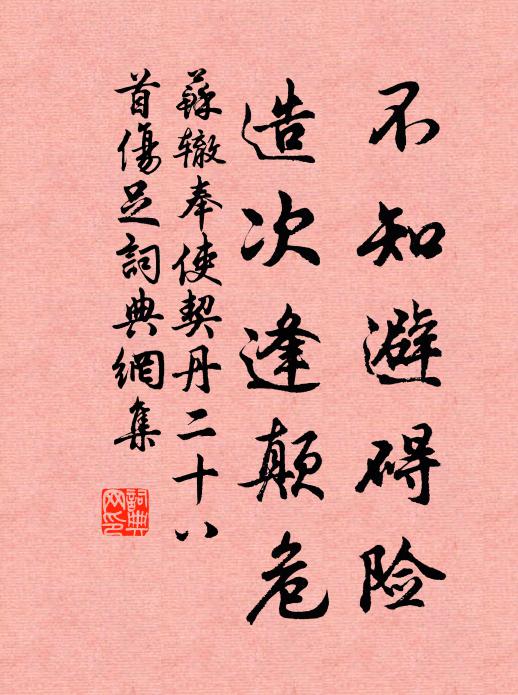 不知避碍险
造次逢颠危
蘇辙奉使契丹二十八
首傷足詞典網集
詞典网印